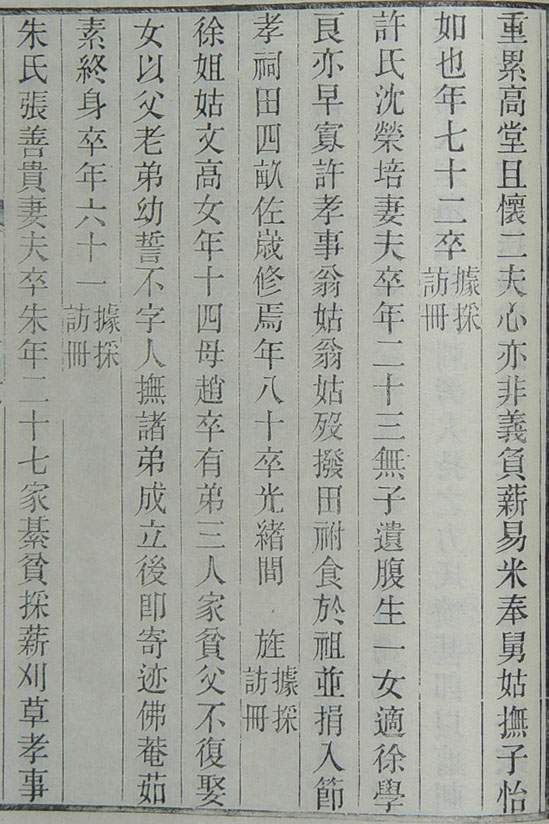 重累高堂且懷二夫心亦非義負薪易米奉舅姑撫子怡
如也年七十二卒據採訪冊
許氏沈榮培妻夫卒年二十三無子遺腹生一女適徐學
良亦早寡許孝事翁姑翁姑歿撥田祔食於祖並捐入節
孝祠田四畝佐歲修焉年八十卒光緒間 旌據採訪冊
徐姐姑文高女年十四母趙卒有弟三人家貧父不復娶
女以父老弟幼誓不字人撫諸弟成立後卽寄迹佛菴茹
素終身卒年六十一據採訪冊
朱氏張善貴妻夫卒朱年二十七家綦貧採薪刈草孝事